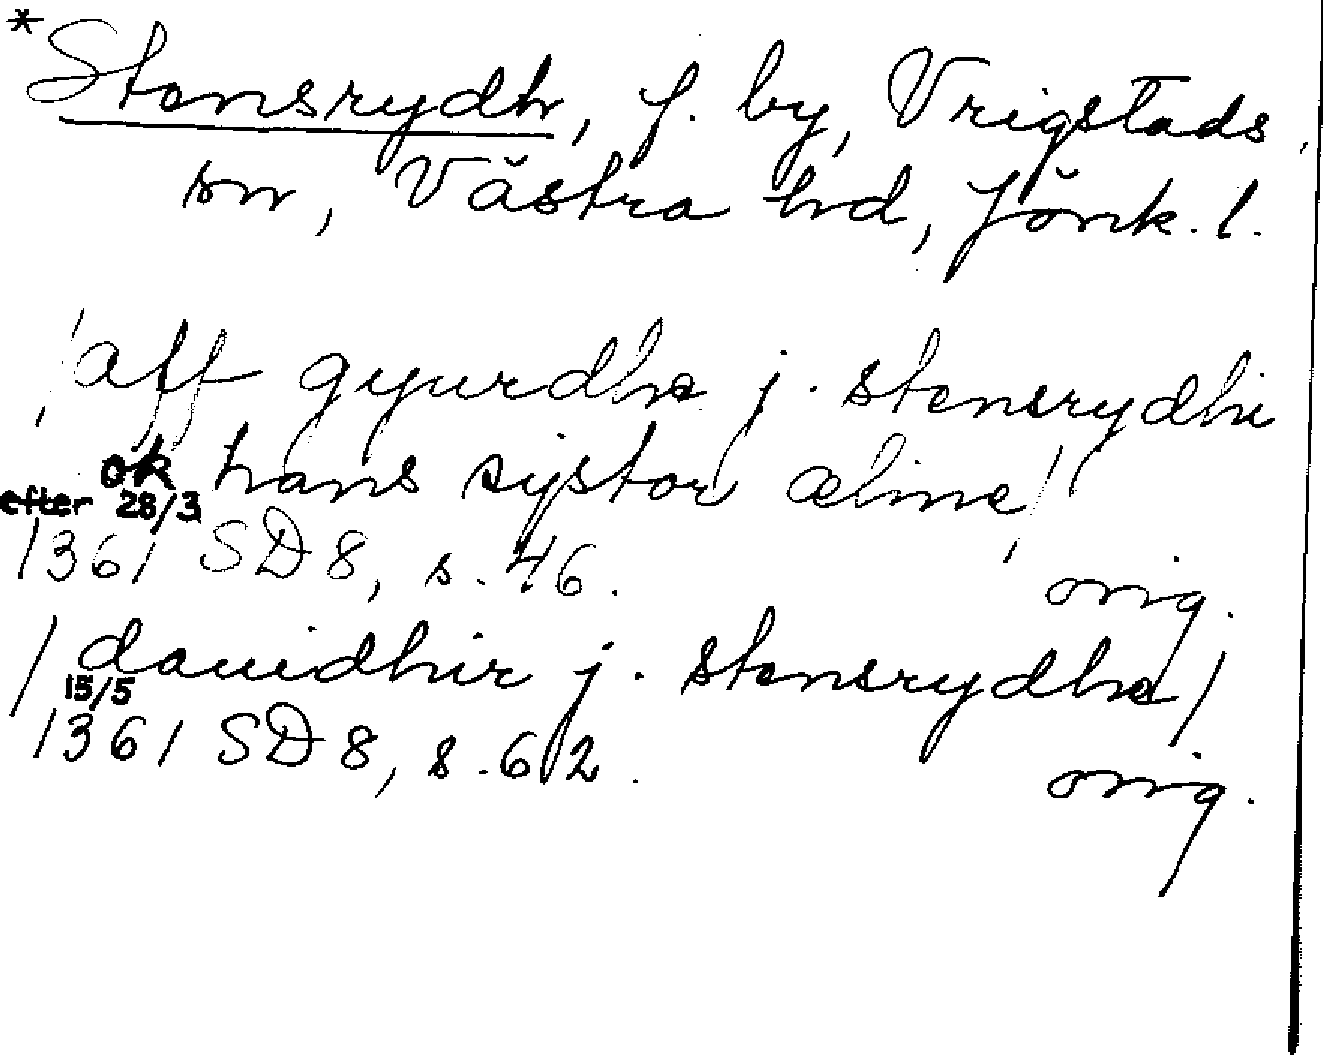 *Stensrydh, f. by, Vrigstads
sn, Västra hd, Jönk. l.
/aff gyurdhæ j. stensrydhi
ok hans systor ælinæ/
efter 28/3
1361 SD 8, s. 46. orig.
/dauidhir j. stensrydhæ/
15/5
1361 SD 8, s. 62. orig.